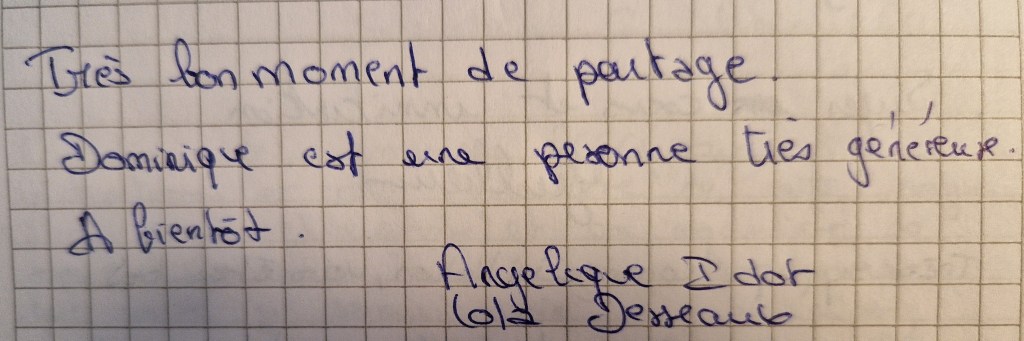 Très bon moment de partage.
Dominique est une personne très généreuse.
A bientôt.
Angelique Idot
Desseaux